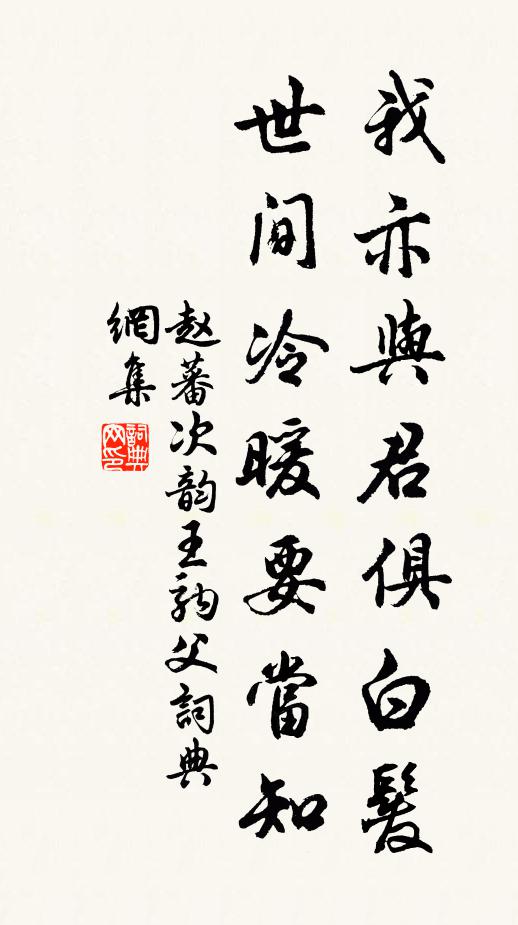 我亦與君俱白髮
世間冷暖要當知
赵蕃次韵王父詞典
網集
詞典网印